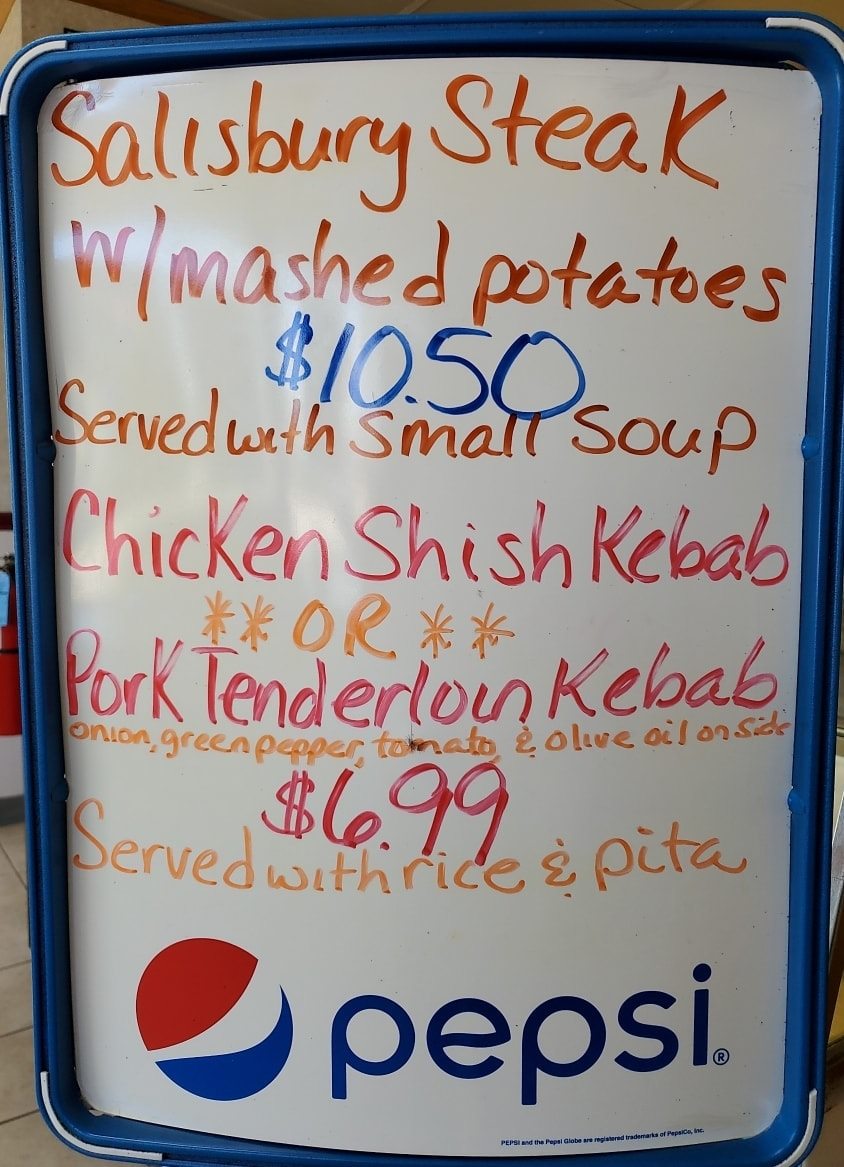 Salisbury Steak
w/mashed potatoes
$10.50
Served with small soup
Chicken Shish Kebab
** OR **
Pork Tenderloin Kebab
onion, green pepper, tomato, & olive oil on side
$6.99
Served with rice & pita
pepsi®
PEPSI and the Pepsi Globe are registered trademarks of PepsiCo, Inc.